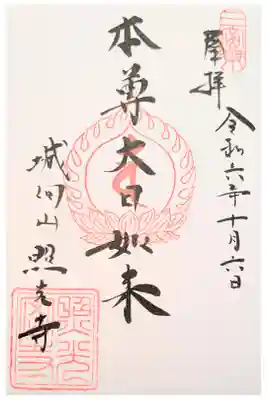 奉拝
令和六年十月六日
本尊大日如来
城向山
照光寺